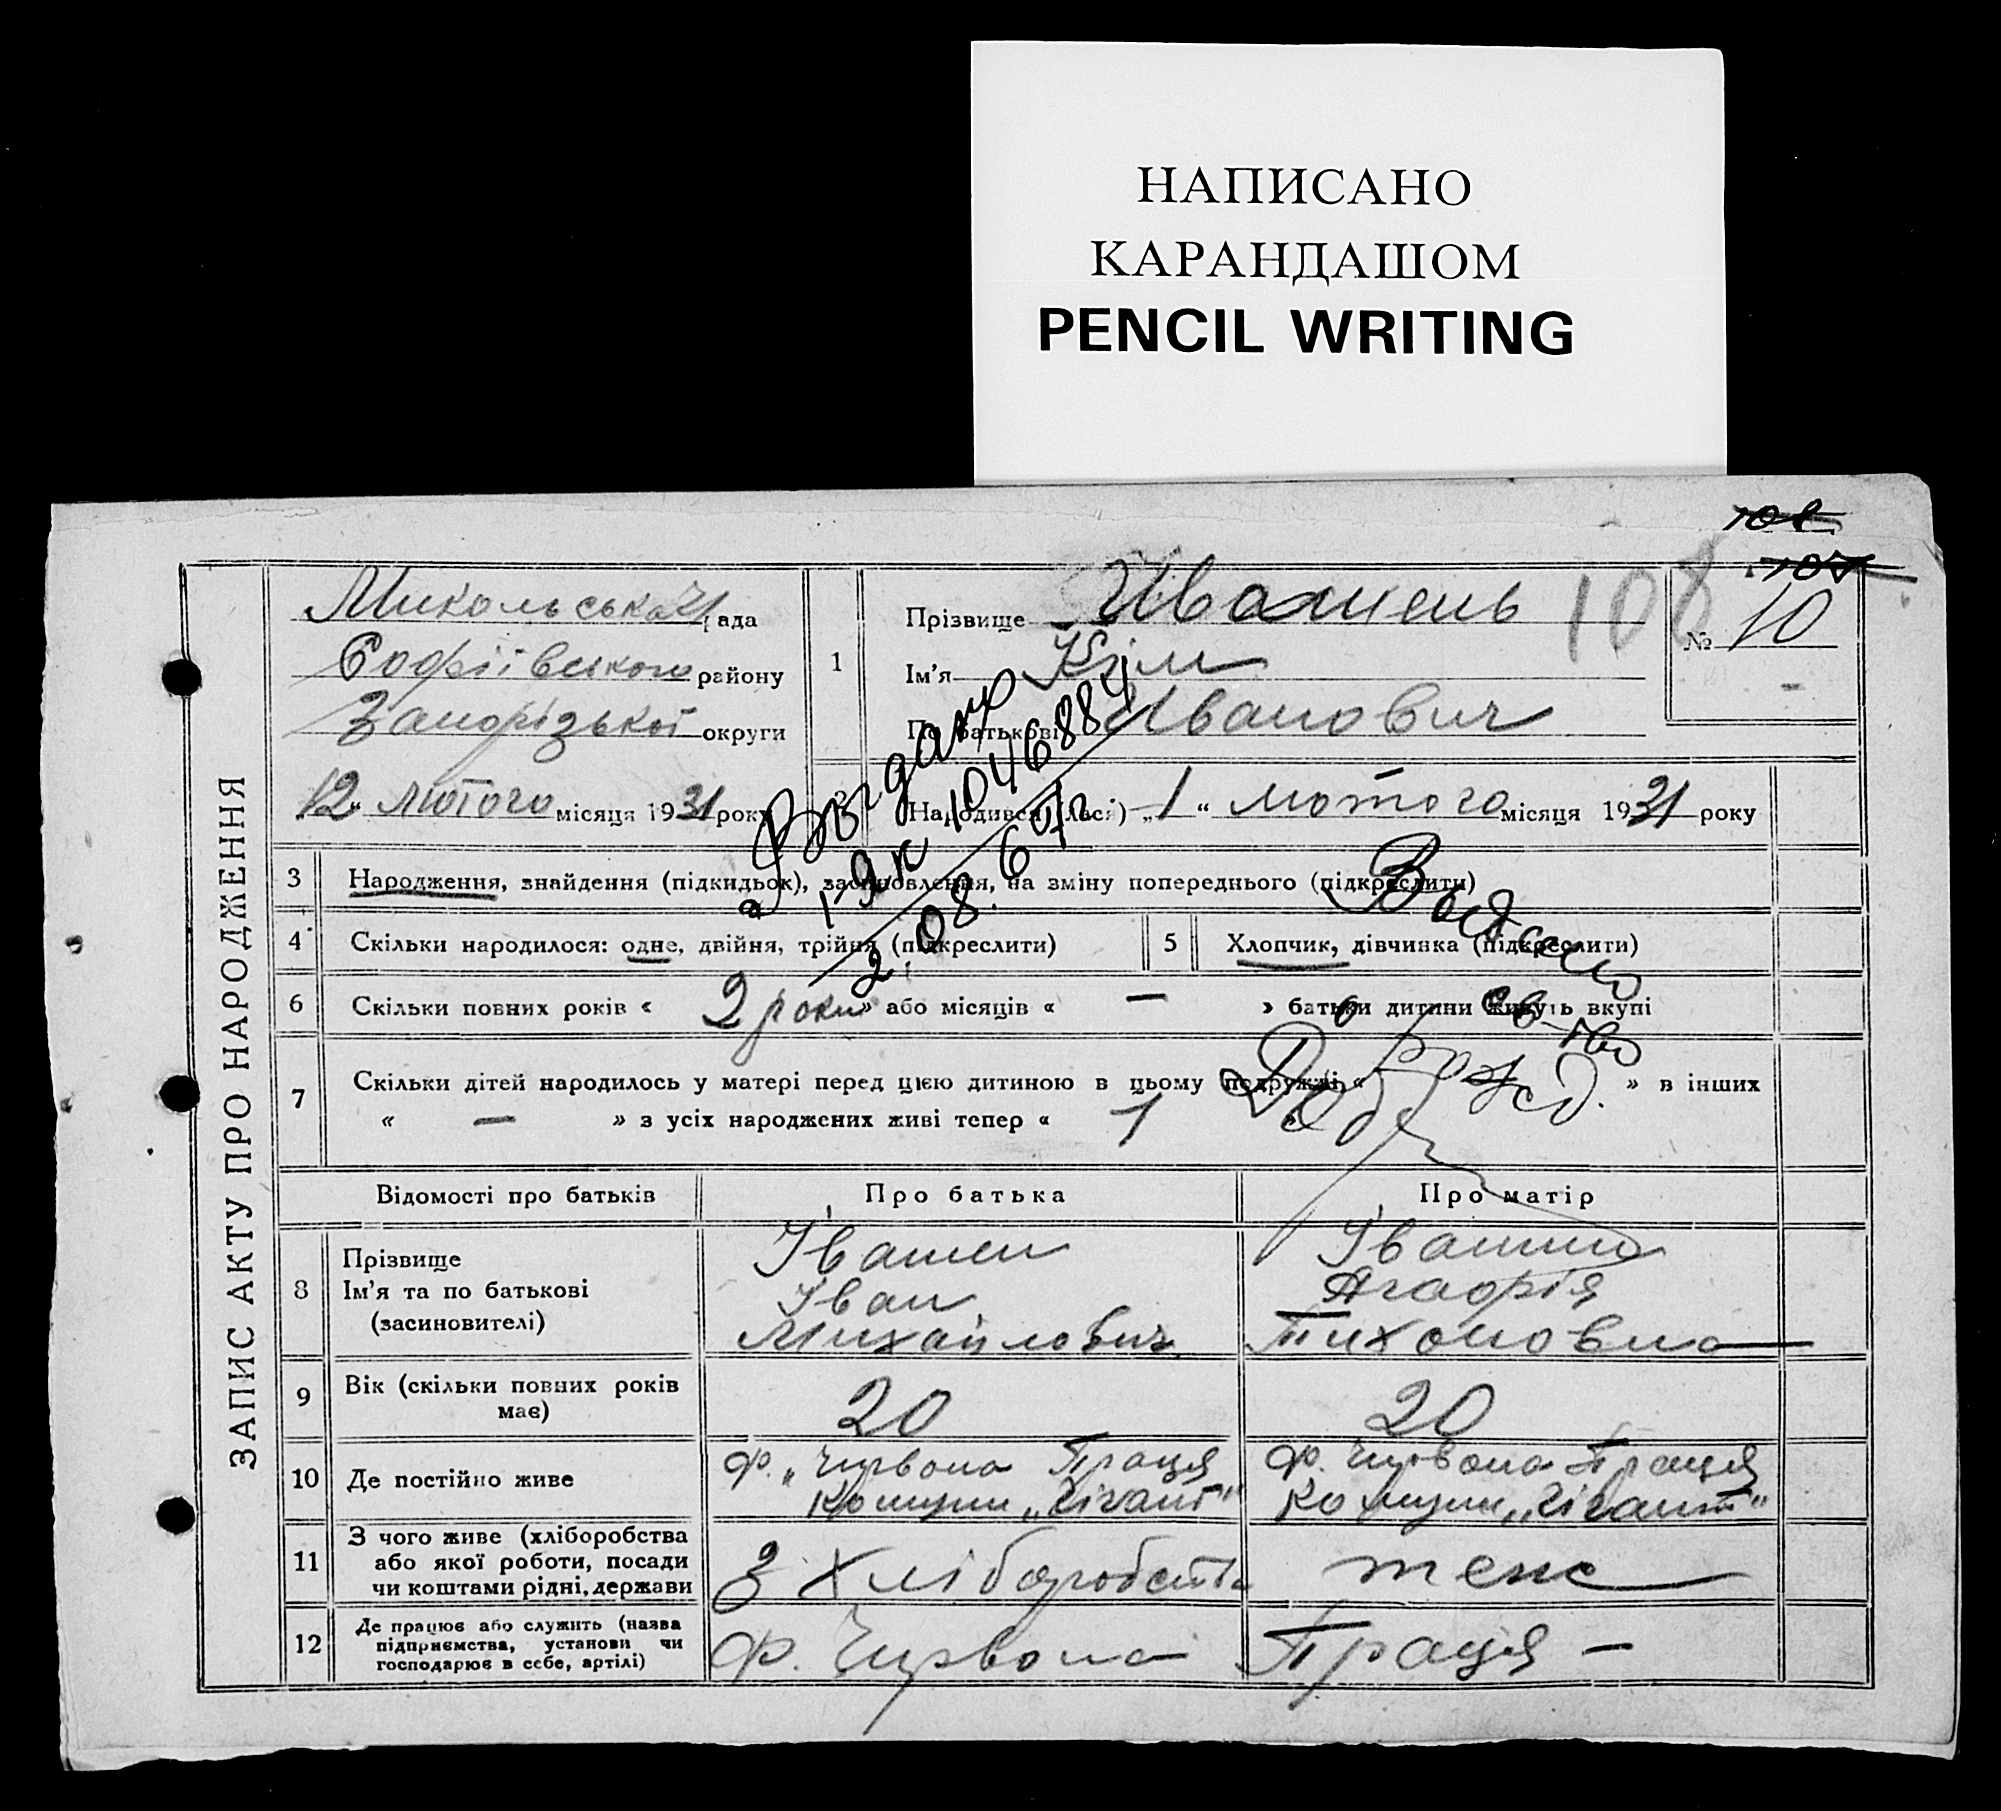 НАПИСАНО
КАРАНДАШОМ
PENCIL WRITING
108
107
108
ЗАПИС АКТУ ПРО НАРОДЖЕННЯ
Микольська рада
Софіївського району
Запорізької округи
„12“ лютого місяця 1931 року
1
Прізвище Ивашень
Ім'я Кім
По батькові Иванович
№ 10
2 Народився (лась) „1“ лютого місяця 1931 року
3 Народження, знайдення (підкидьок), засиновлення, на зміну попереднього (підкреслити)
4 Скільки народилося: одне, двійня, трійня (підкреслити)
5 Хлопчик, дівчинка (підкреслити)
6 Скільки повних років « 2 роки» або місяців « — » батьки дитини живуть вкупі
7 Скільки дітей народилось у матері перед цією дитиною в цьому подружжі « » в інших
« — » з усіх народжених живі тепер « 1
Выдано
1-ЯК 1046884
2.08.67г.
Выдано
о рожд.
Відомості про батьків Про батька Про матір
8 Прізвище
Ім'я та по батькові
(засиновителі)
Івашен
Іван
Михайлович
Івашин
Агафія
Тихоновна
9 Вік (скільки повних років
має)
20
20
10 Де постійно живе
ф. „Червона Праця
Комуни „Гігант"
ф. Червона Праця
Комуни „Гігант"
11 З чого живе (хліборобства
або якої роботи, посади
чи коштами рідні, держави
З хліборобства
теж
12 Де працює або служить (назва
підприємства, установи чи
господарює в себе, артілі)
ф. Червона Праця –